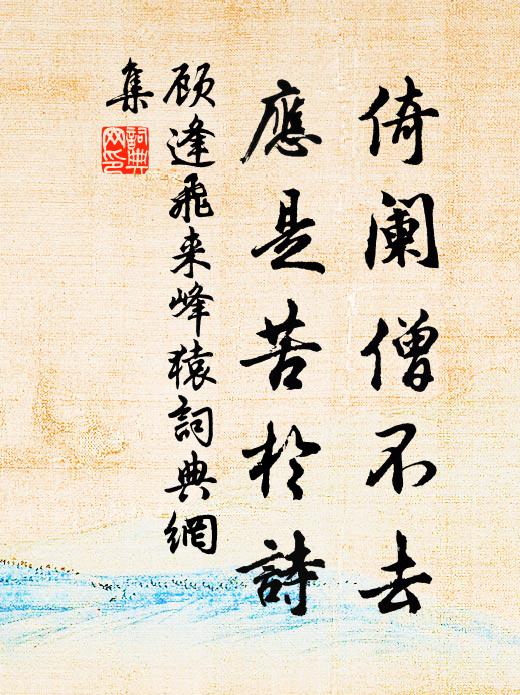 倚阑僧不去
應是苦於詩
顾逢飛来峰猿詞典網
集
詞典
网印